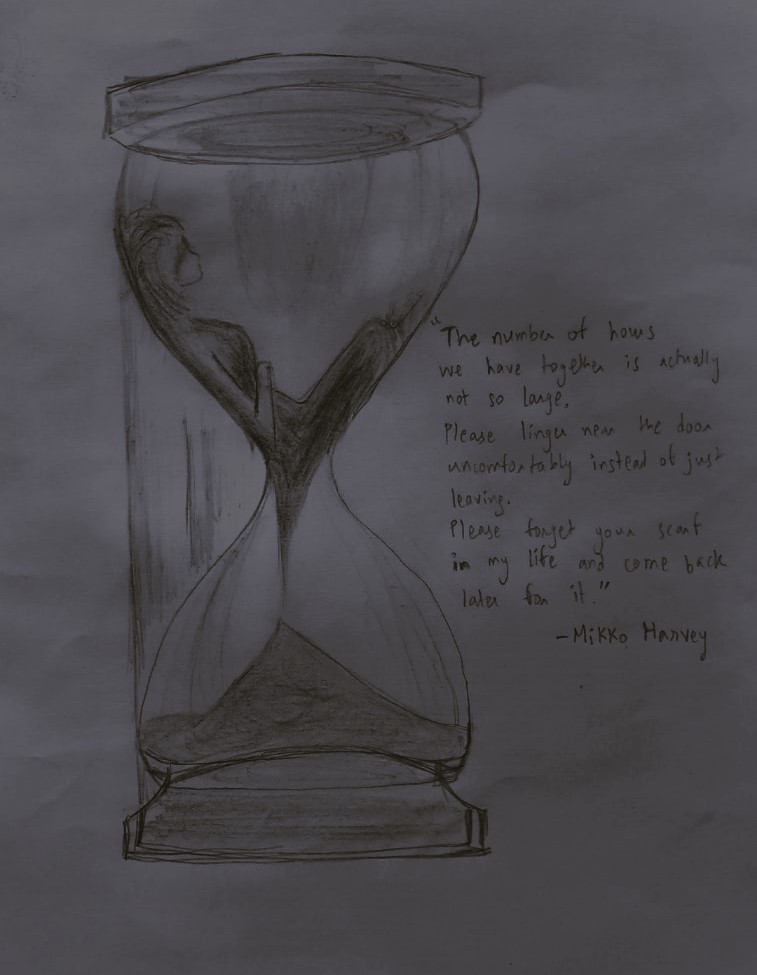 "The number of hours
we have together is actually
not so large.
Please linger near the door
uncomfortably instead of just
leaving.
Please forget your scarf
in my life and come back
later for it."
-Mikko Harvey